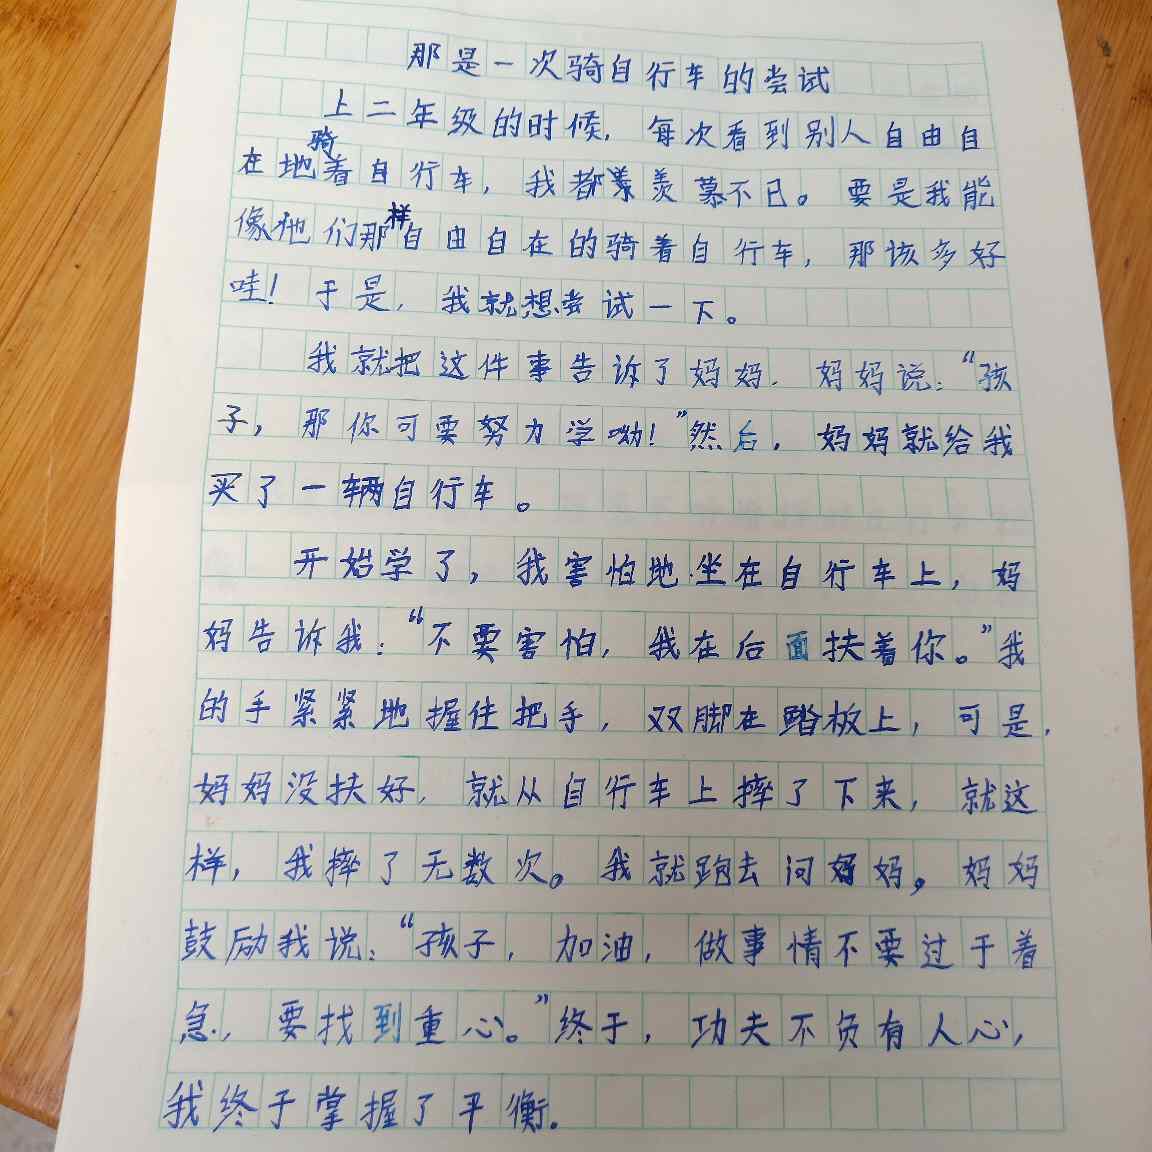 那是一次骑自行车的尝试
上二年级的时候，每次看到别人自由自
在地骑着自行车，我都羡慕不已。要是我能
像他们那样自由自在的骑着自行车，那该多好
哇！于是，我就想尝试一下。
我就把这件事告诉了妈妈，妈妈说：“孩
子，那你可要努力学呦！”然后，妈妈就给我
买了一辆自行车。
开始学了，我害怕地坐在自行车上，妈
妈告诉我：“不要害怕，我在后面扶着你。”我
的手紧紧地握住把手，双脚在踏板上，可是，
妈妈没扶好，就从自行车上摔了下来，就这
样，我摔了无数次。我就跑去问妈妈，妈妈
鼓励我说：“孩子，加油，做事情不要过于着
急，要找到重心。”终于，功夫不负有人心，
我终于掌握了平衡。